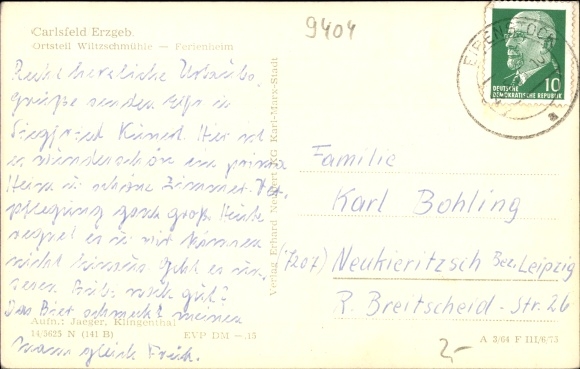 Carlsfeld Erzgeb.
Ortsteil Wiltzschmühle — Ferienheim
9404
EIBENSTOCK
10
DEUTSCHE
DEMOKRATISCHE REPUBLIK
Recht herzliche Urlaubs-
grüße senden
Siegfried Hier ist
es wunderschön ein prima
Heim u. schöne Zimmer. Ver-
pflegung ganz groß. Heute
regnet es u. wir können
nicht hinaus. Geht es
noch gut?
Das Bier schmeckt meinen
Mann gleich früh.
Aufn.: Jaeger, Klingenthal
14/5625 N (141 B) EVP DM —.15
Verlag Erhard Neubert KG Karl-Marx-Stadt
Familie
Karl Bohling
(7207) Neukieritzsch Bez. Leipzig
R. Breitscheid-Str. 26
2,-
A 3/64 F III/6/73